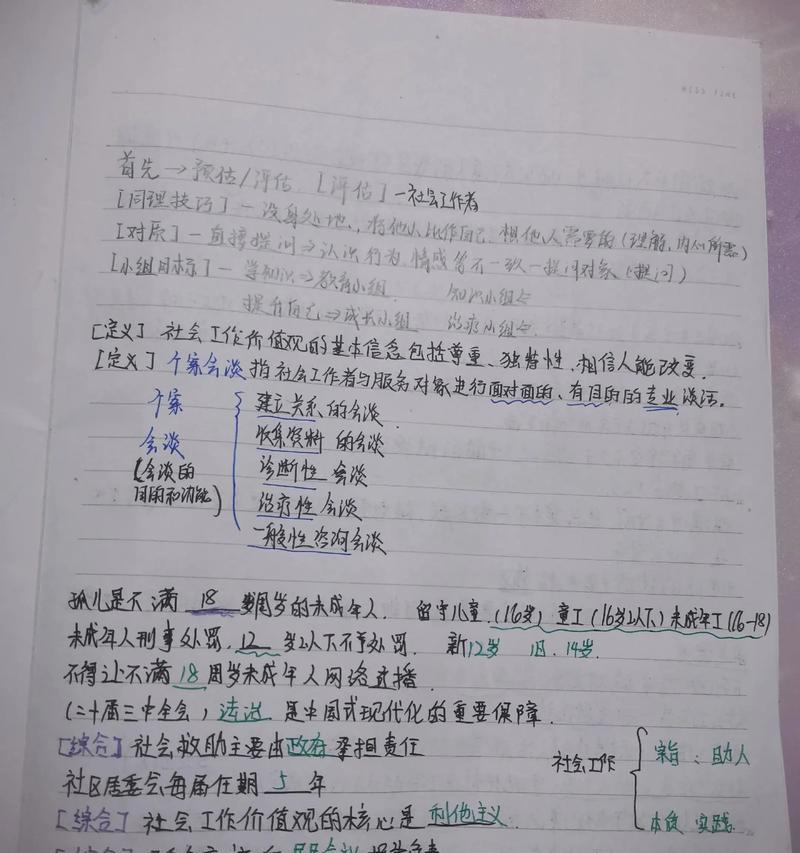 首先→预估/评估 [评估]—社会工作者
[同理技巧]—设身处地,将他人比作自己,想他人需要的(理解,内心所需)
[对质]—直接提问⇒认识行为,情感等不一致—提问对象(提问)
[小组目标]—学知识⇒教育小组 知识小组
提升自己⇒成长小组 治疗小组
[定义]社会工作价值观的基本信念包括尊重、独特性、相信人能改变.
[定义]个案会谈指社会工作者与服务对象进行面对面的、有目的的专业谈话.
个案
会谈
(会谈的
目的和功能)
建立关系的会谈
收集资料的会谈
诊断性会谈
治疗性会谈
一般性咨询会谈
孤儿是不满 18 周岁的未成年人. 留守儿童.(16岁)童工(16岁以下)未成年工(16-18)
未成年人刑事处罚,12岁以下不予处罚. 新12岁 旧.14岁.
不得让不满18周岁未成年人网络直播.
(二十届三中全会)法治是中国式现代化的重要保障.
[综合]社会救助主要由政府承担责任
社区居委会每届任期 5 年
社会工作
宗旨:助人
本质 实践
[综合]社会工作价值观的核心是利他主义.